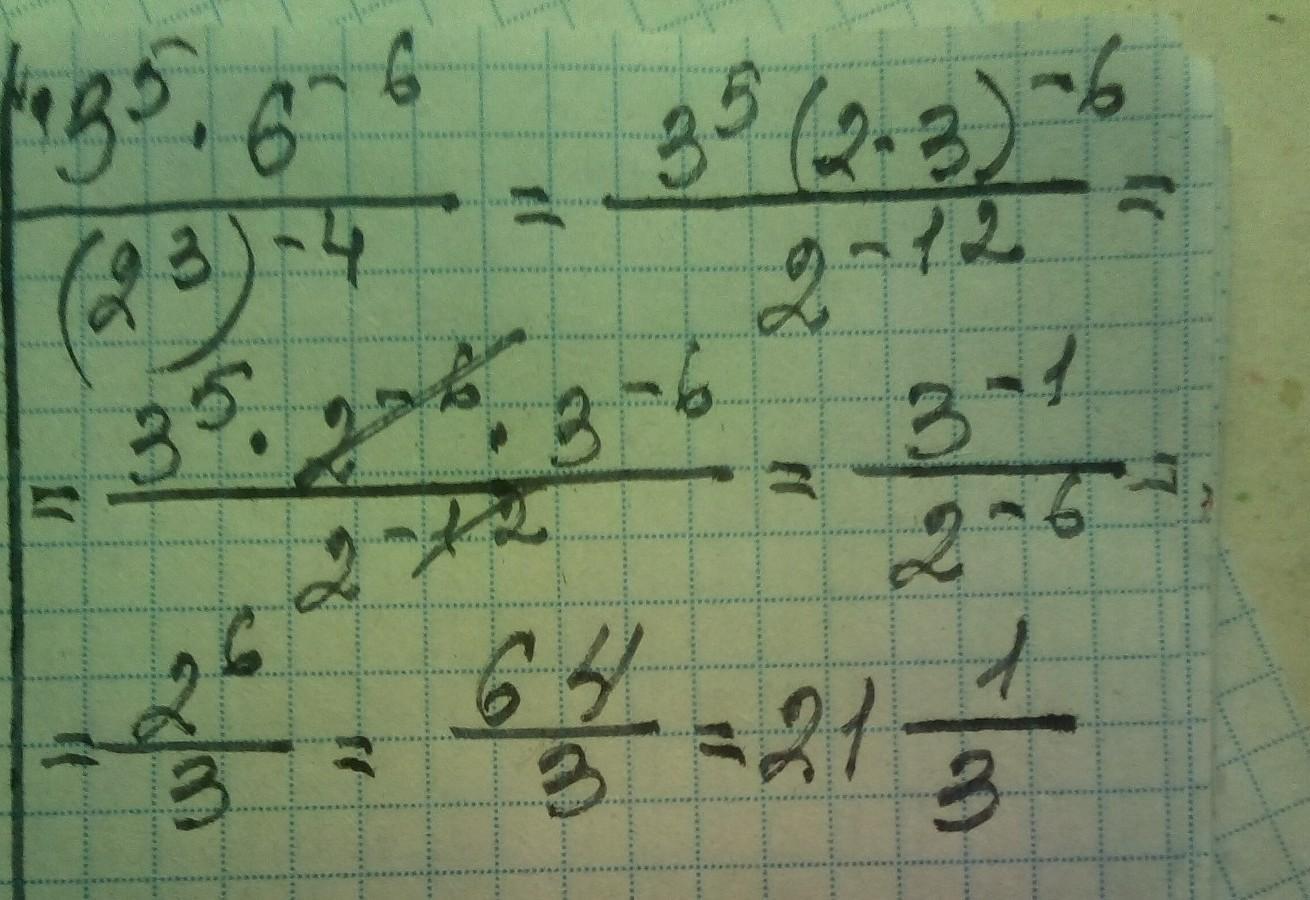 3⁵ · 6⁻⁶ / (2³)⁻⁴ = 3⁵ (2 · 3)⁻⁶ / 2⁻¹² =
= 3⁵ · 2⁻⁶ · 3⁻⁶ / 2⁻¹² = 3⁻¹ / 2⁻⁶ =
= 2⁶ / 3 = 64 / 3 = 21 1/3